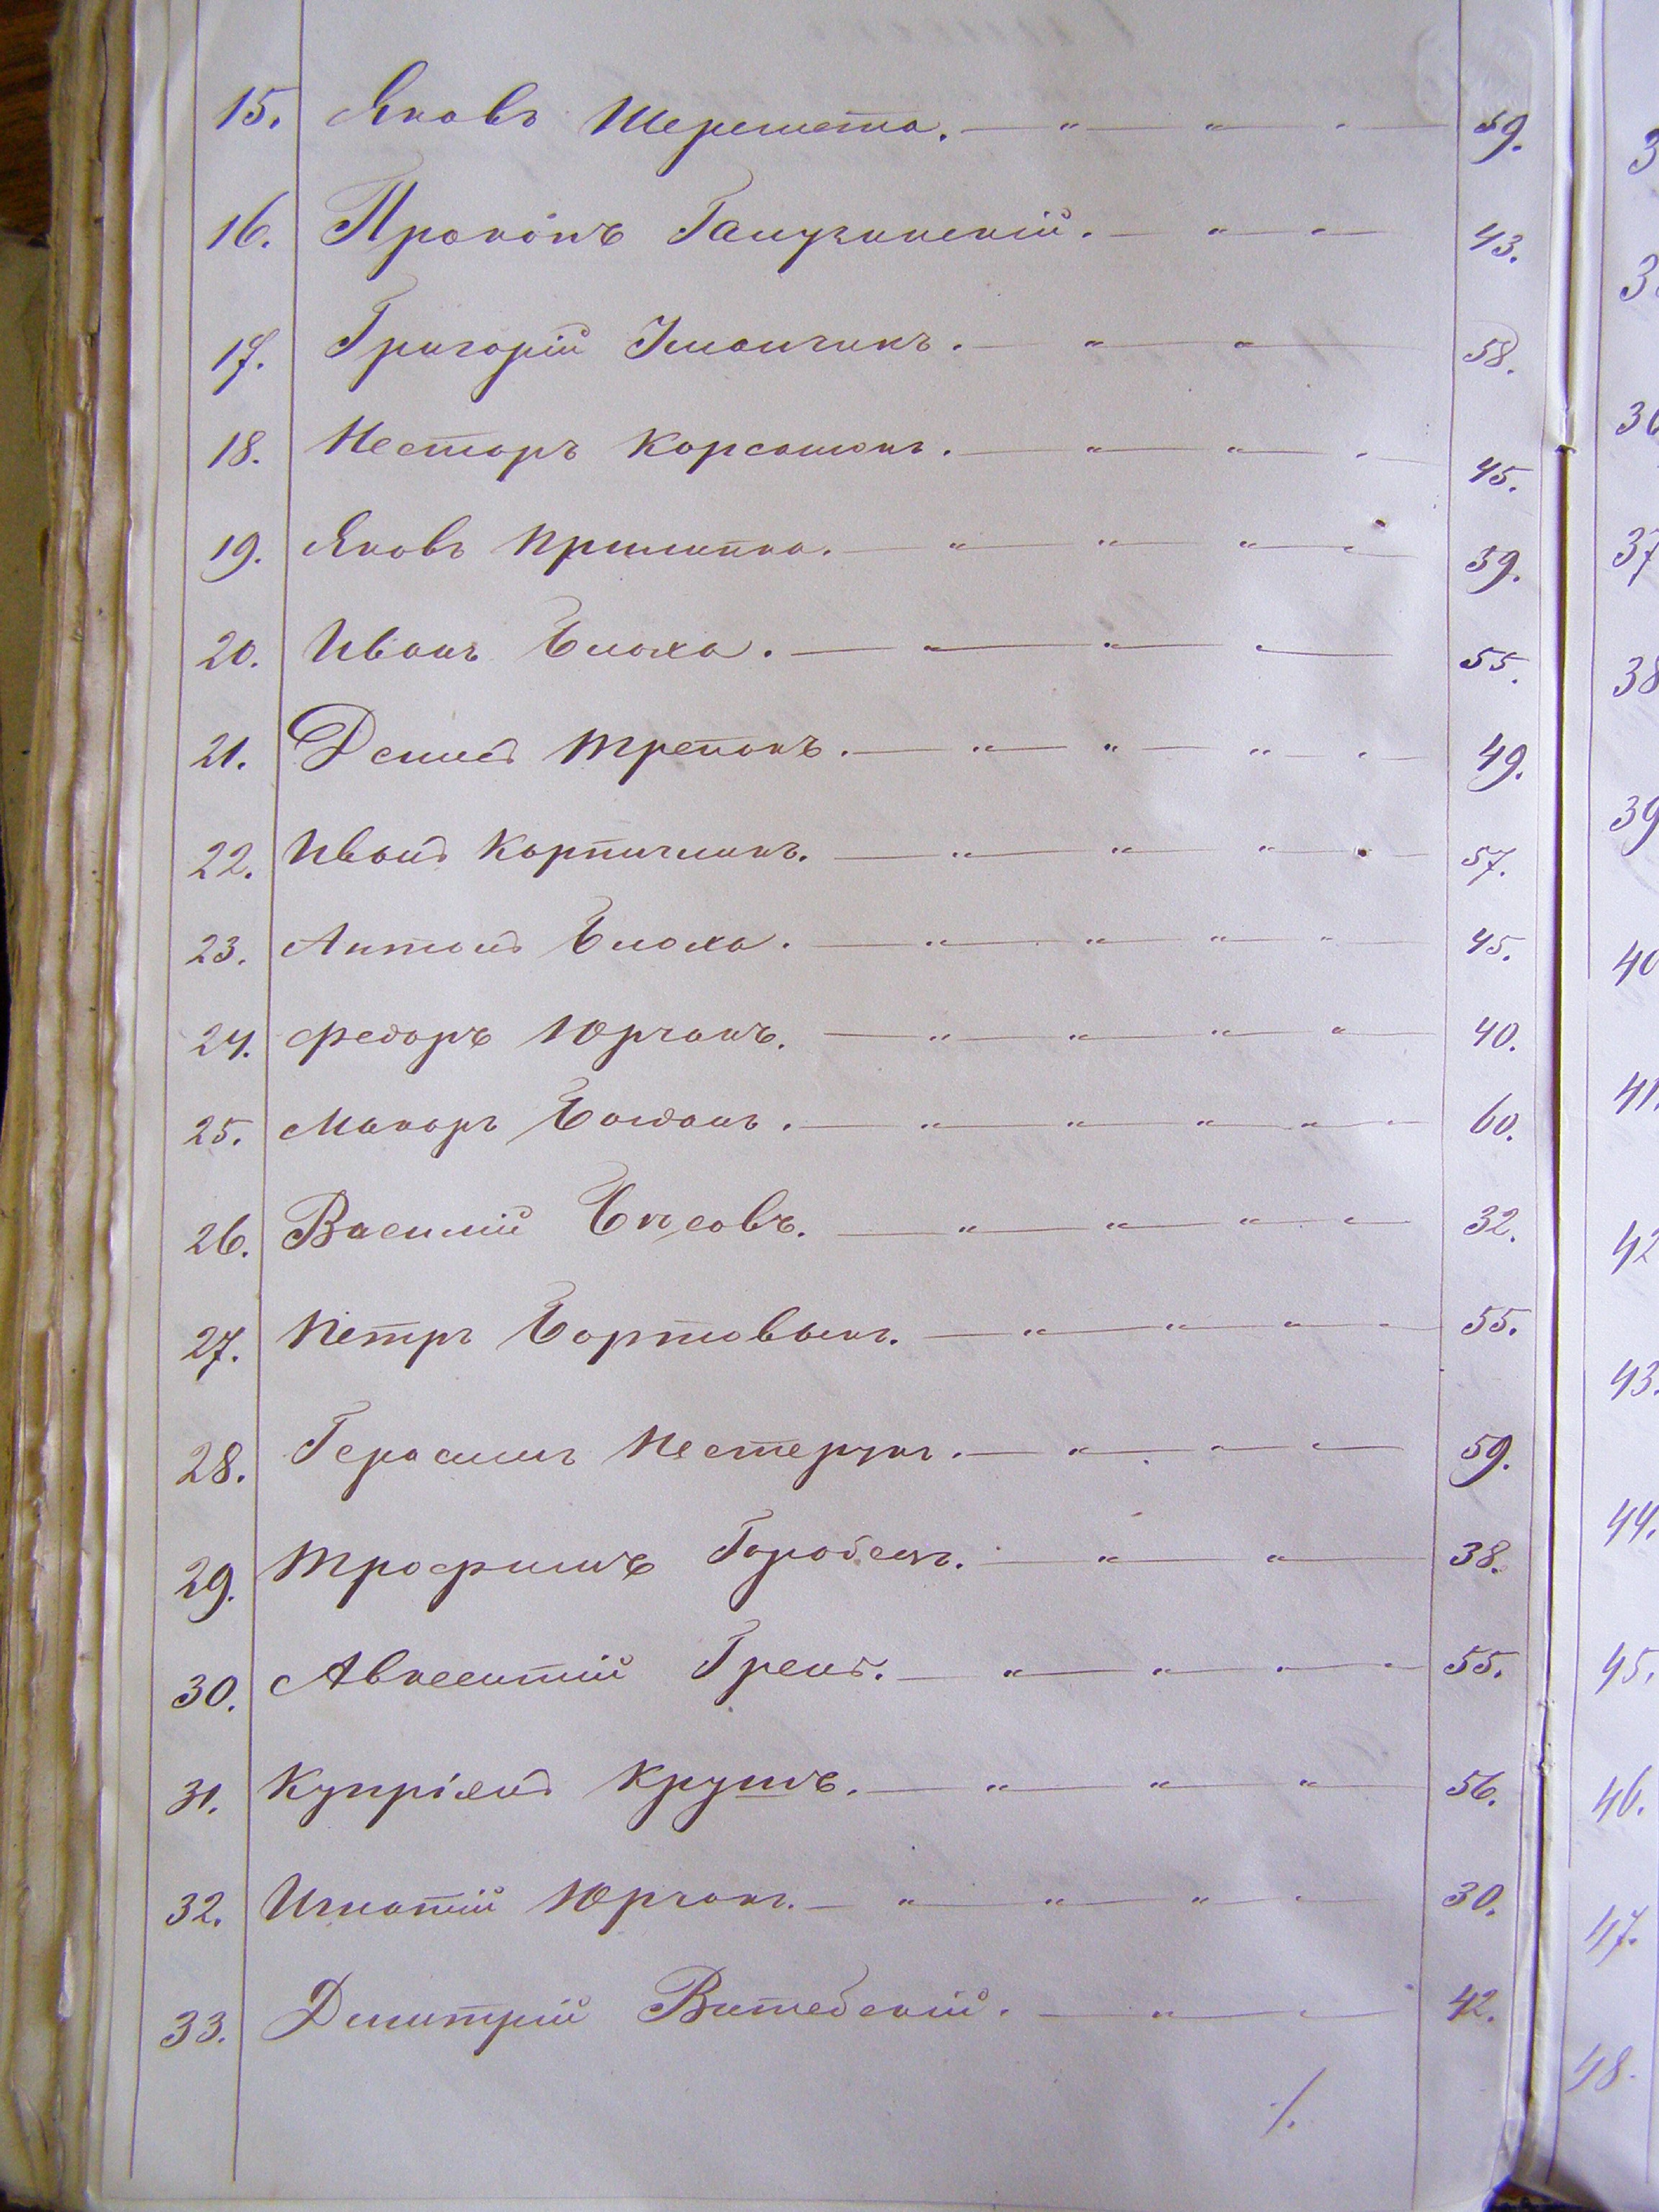 15. Яковъ Шеремета. — „ — „ — „ — 59.
16. Прокопъ Галузинскій. — „ — „ — 43.
17. Григорій Климчикъ. — „ — „ — 58.
18. Несторъ Корсашокъ. — „ — „ — „ — 45.
19. Яковъ Прилипко. — „ — „ — „ — „ — 39.
20. Иванъ Блоха. — „ — „ — „ — 55.
21. Демид Трепакъ. — „ — „ — „ — „ — 49.
22. Иванъ Карпичынъ. — „ — „ — „ — „ — 57.
23. Антонъ Блоха. — „ — „ — „ — „ — 45.
24. Федоръ Юрчакъ. — „ — „ — „ — „ — 40.
25. Макаръ Богданъ. — „ — „ — „ — „ — „ — 60.
26. Василій — „ — „ — „ — „ — 32.
27. Петръ Бортовыкъ. — „ — „ — „ — „ — 55.
28. Герасимъ Нестерукъ. — „ — „ — „ — 59.
29. Трофимъ Горобецъ. — „ — „ — 38.
30. Авксентій Гренъ. — „ — „ — „ — „ — 55.
31. Купріянъ Крутъ. — „ — „ — „ — 56.
32. Игнатій Юрчакъ. — „ — „ — „ — „ — 30.
33. Дмитрій Витебскій. — „ — „ — 42.
./.
37
38
39
40
41.
42
43.
44.
45.
46.
47.
48.